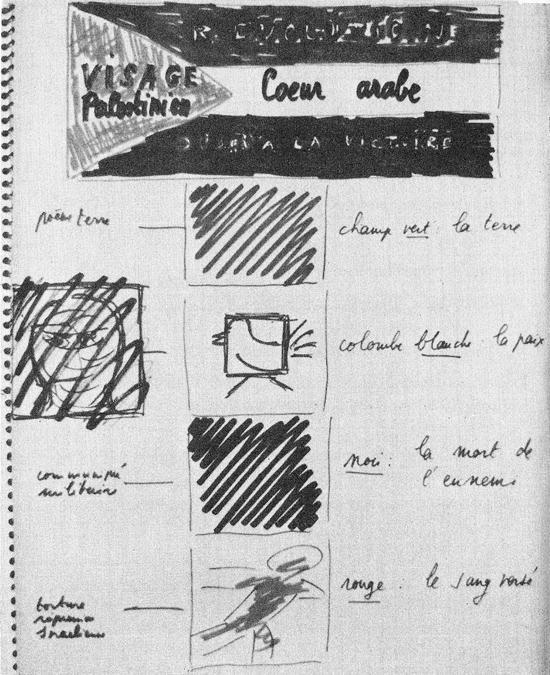 REVOLUTION
VISAGE
Palestinien
Coeur arabe
JUSQU'A LA VICTOIRE
poème terre
champ vert : la terre
colombe blanche : la paix
noir : la mort de
l'ennemi
communiqué
militaire
rouge : le sang versé
torture